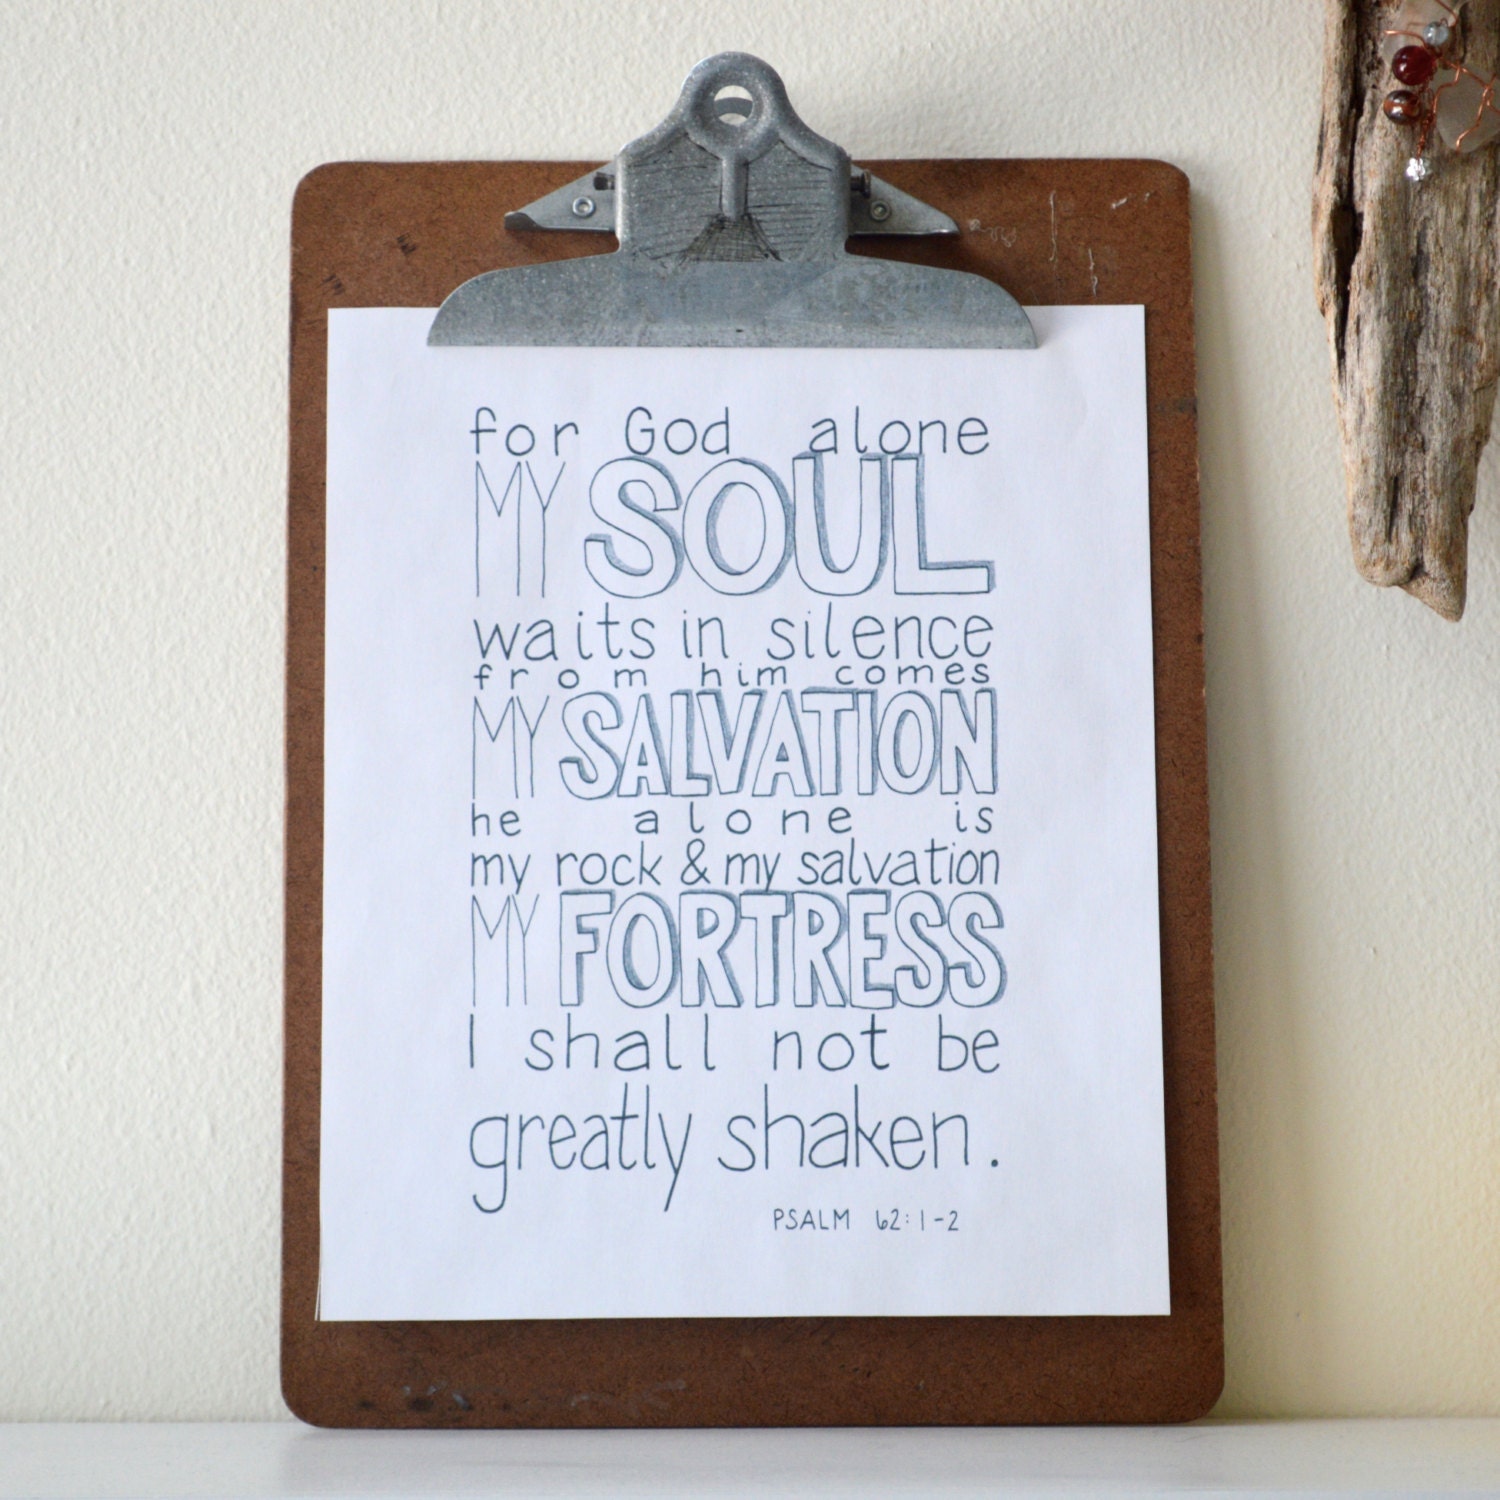 for God alone
MY SOUL
waits in silence
from him comes
MY SALVATION
he alone is
my rock & my salvation
MY FORTRESS
I shall not be
greatly shaken.
PSALM 62:1-2